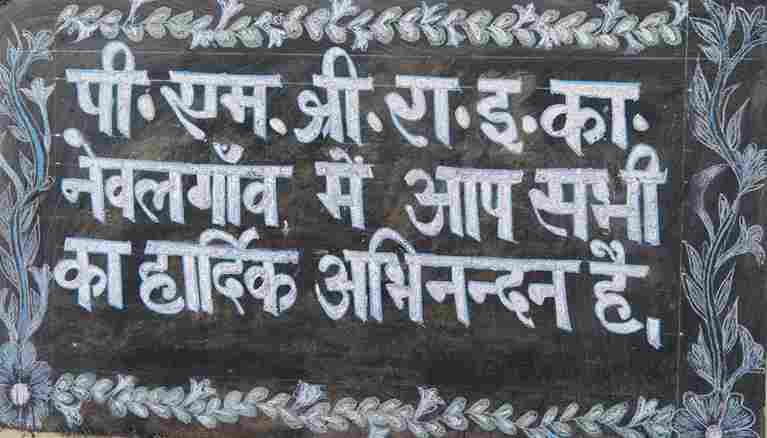 पी.एम.श्री.रा.इ.का.
नेवलगाँव में आप सभी
का हार्दिक अभिनन्दन है.